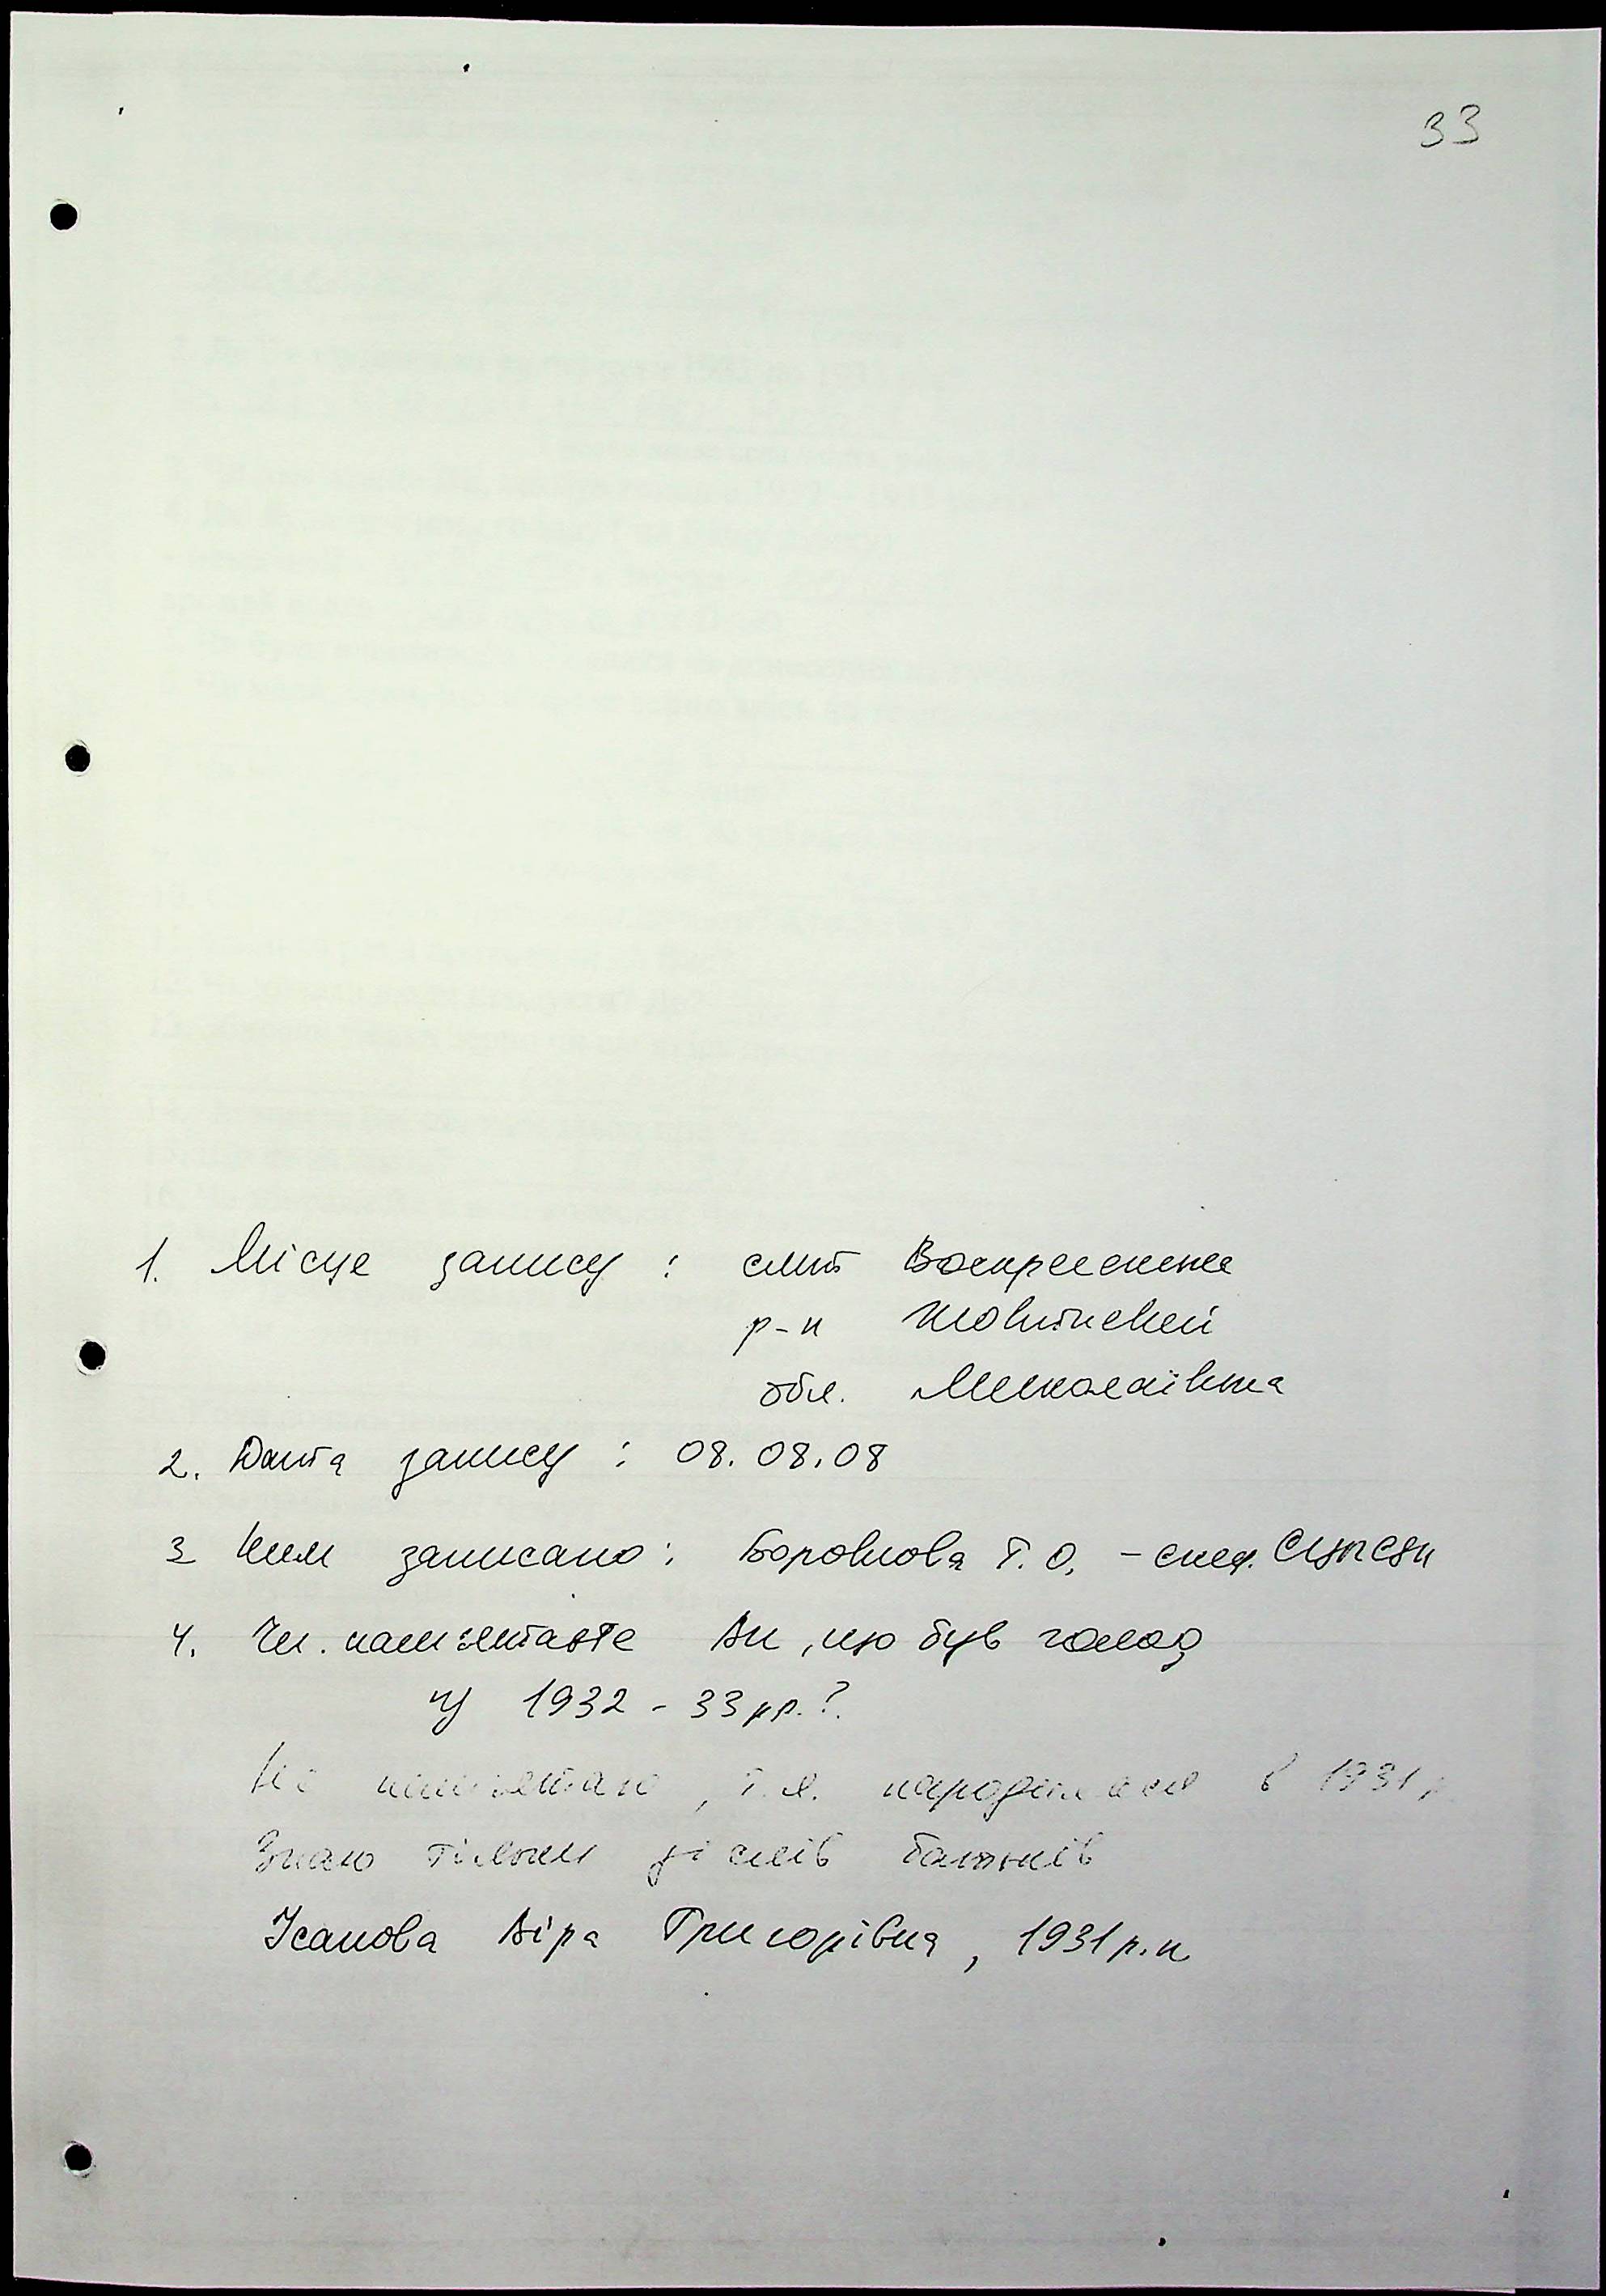 33
1. Місце запису : смт Воскресенське
р-н Жовтневий
обл. Миколаївська
2. Дата запису : 08.08.08
3 Ким записано: Боровкова Т.О. – спец.
4. Чи пам'ятаєте Ви, що був голод
у 1932 - 33 рр.?
Не пам'ятаю, т.я. народилася в 1931 р
Знаю тільки зі слів батьків
Усанова Віра Григорівна, 1931 р.н